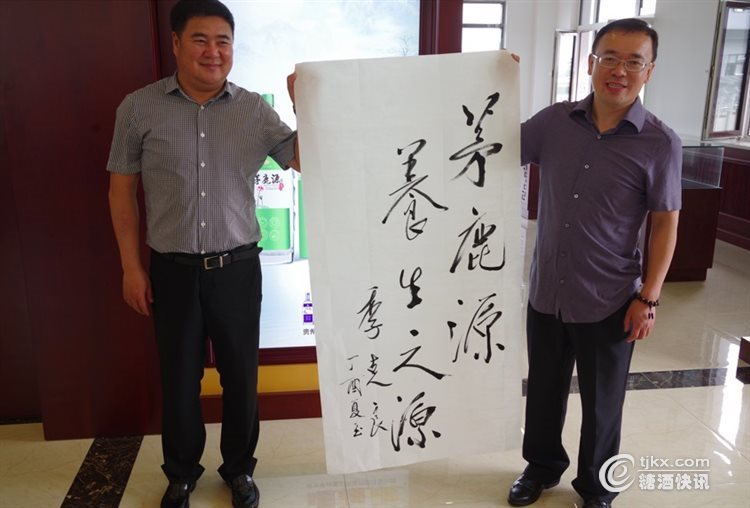 茅鹿源
養生之源
季克良
丁酉夏書
茅鹿源
贵州
tjkx.com
糖酒快讯